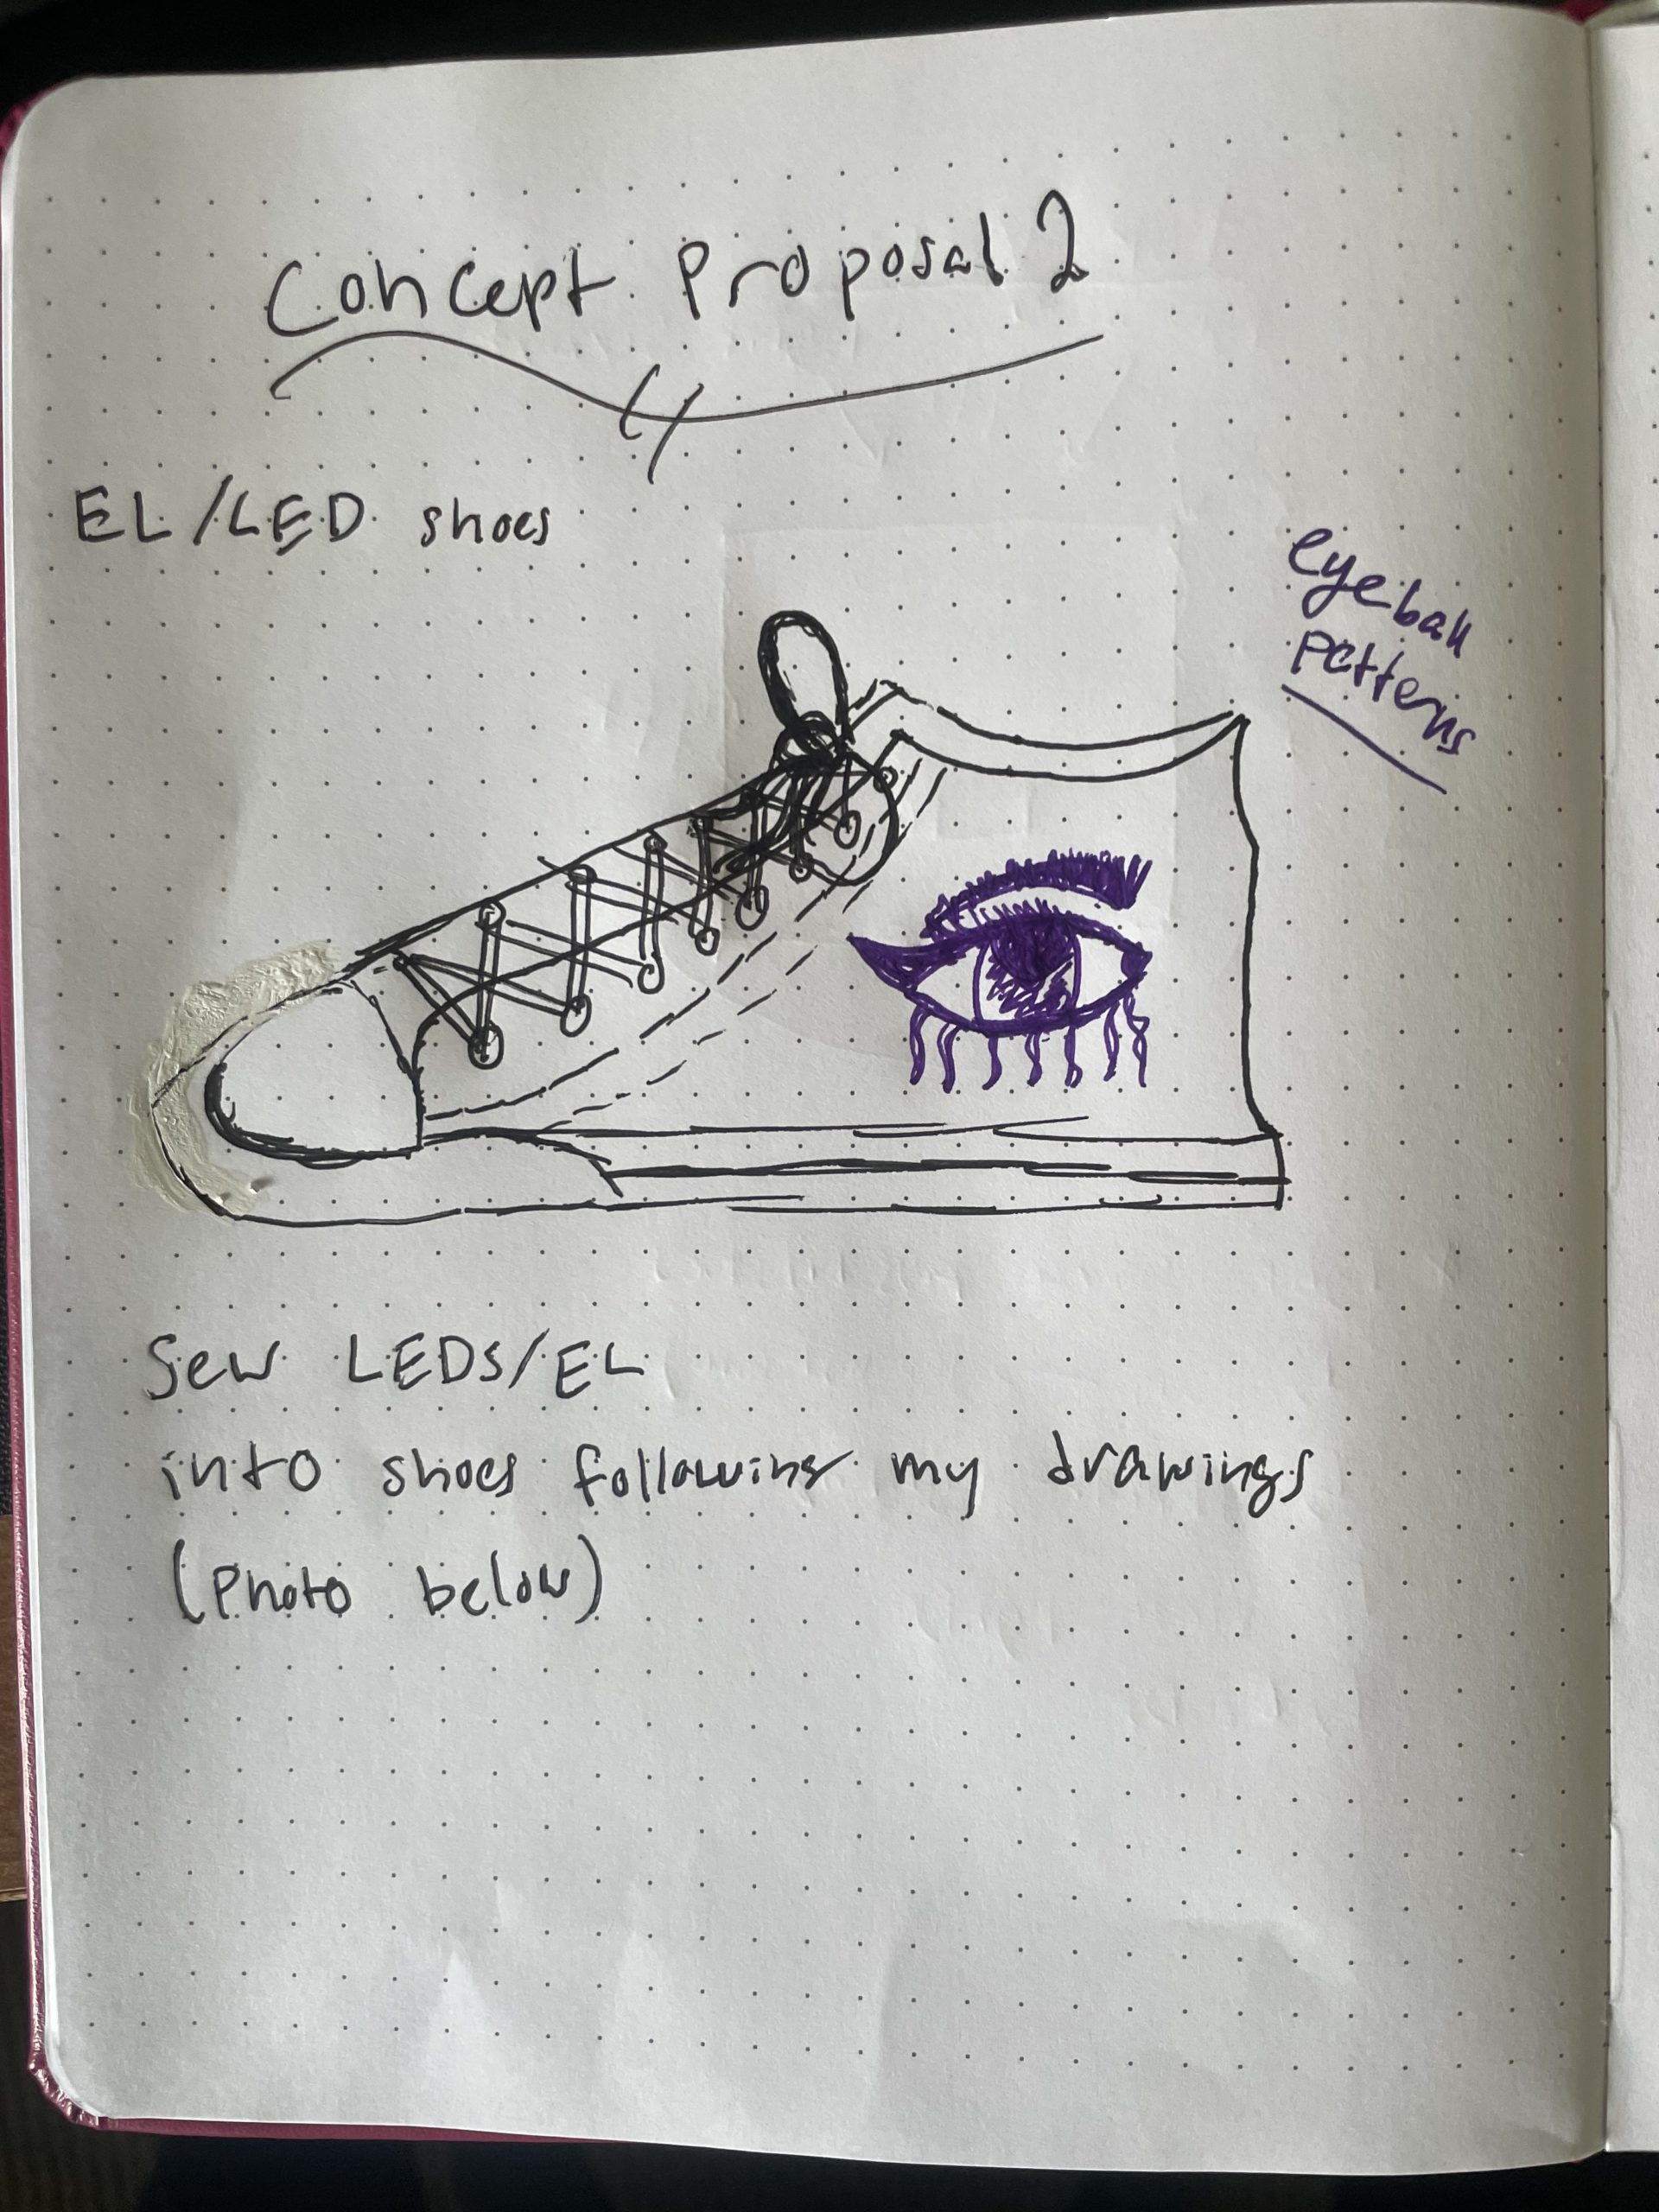 Concept Proposal 2
EL/LED shoes
eyeball
patterns
Sew LEDs/EL
into shoes following my drawings
(Photo below)